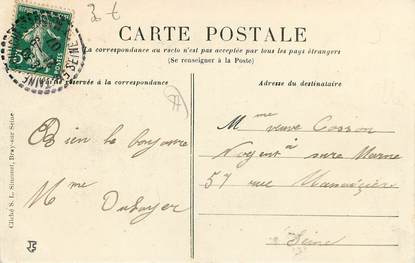 3 t
CARTE POSTALE
La correspondance au recto n'est pas acceptée par tous les pays étrangers
(Se renseigner à la Poste)
réservée à la correspondance
Adresse du destinataire
5c
SEINE
Bien le bonjour
Mme Duhoyer
Mme veuve Cosson
Nogent sure Marne
57 rue
Seine
Cliché S. L. Simonet, Bray-sur-Seine